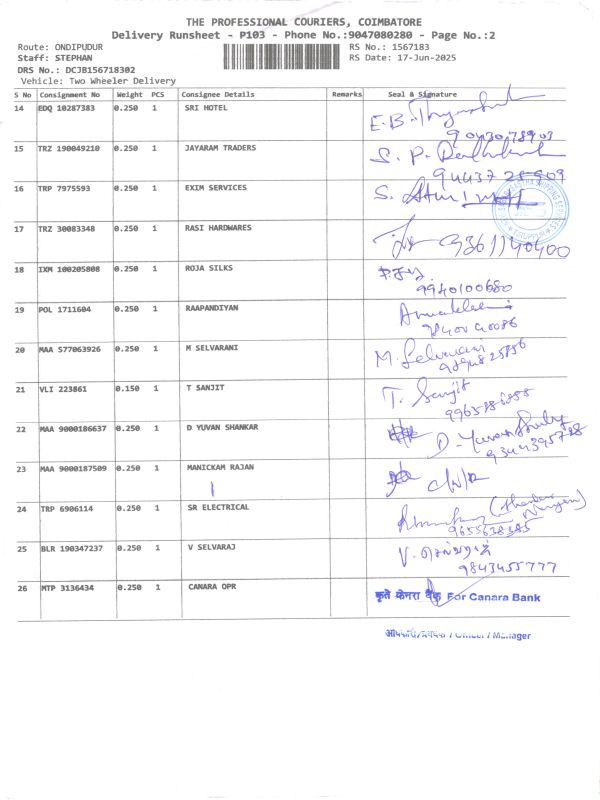 THE PROFESSIONAL COURIERS, COIMBATORE
Delivery Runsheet - P103 - Phone No.:9047080280 - Page No.:2
Route: ONDIPUDUR
RS No.: 1567183
Staff: STEPHAN
RS Date: 17-Jun-2025
DRS No.: DCJB156718302
Vehicle: Two Wheeler Delivery
S No Consignment No Weight PCS Consignee Details Remarks Seal & Signature
14 EDQ 10287383 0.250 1 SRI HOTEL
E.B.
15 TRZ 190049210 0.250 1 JAYARAM TRADERS
S. P.
16 TRP 7975593 0.250 1 EXIM SERVICES
S.
17 TRZ 30083348 0.250 1 RASI HARDWARES
9361140400
18 IXM 100205808 0.250 1 ROJA SILKS
9940100680
19 POL 1711604 0.250 1 RAAPANDIYAN
20 MAA 577063926 0.250 1 M SELVARANI
M. Selvarani
21 VLI 223861 0.150 1 T SANJIT
T. Sanjit
22 MAA 9000186637 0.250 1 D YUVAN SHANKAR
D. Yuvan
9344395788
23 MAA 9000187509 0.250 1 MANICKAM RAJAN
24 TRP 6906114 0.250 1 SR ELECTRICAL
9655638385
25 BLR 190347237 0.250 1 V SELVARAJ
V. செல்வராஜ்
9843455777
26 MTP 3136434 0.250 1 CANARA OPR
कृते केनरा बैंक For Canara Bank
Officer / Manager